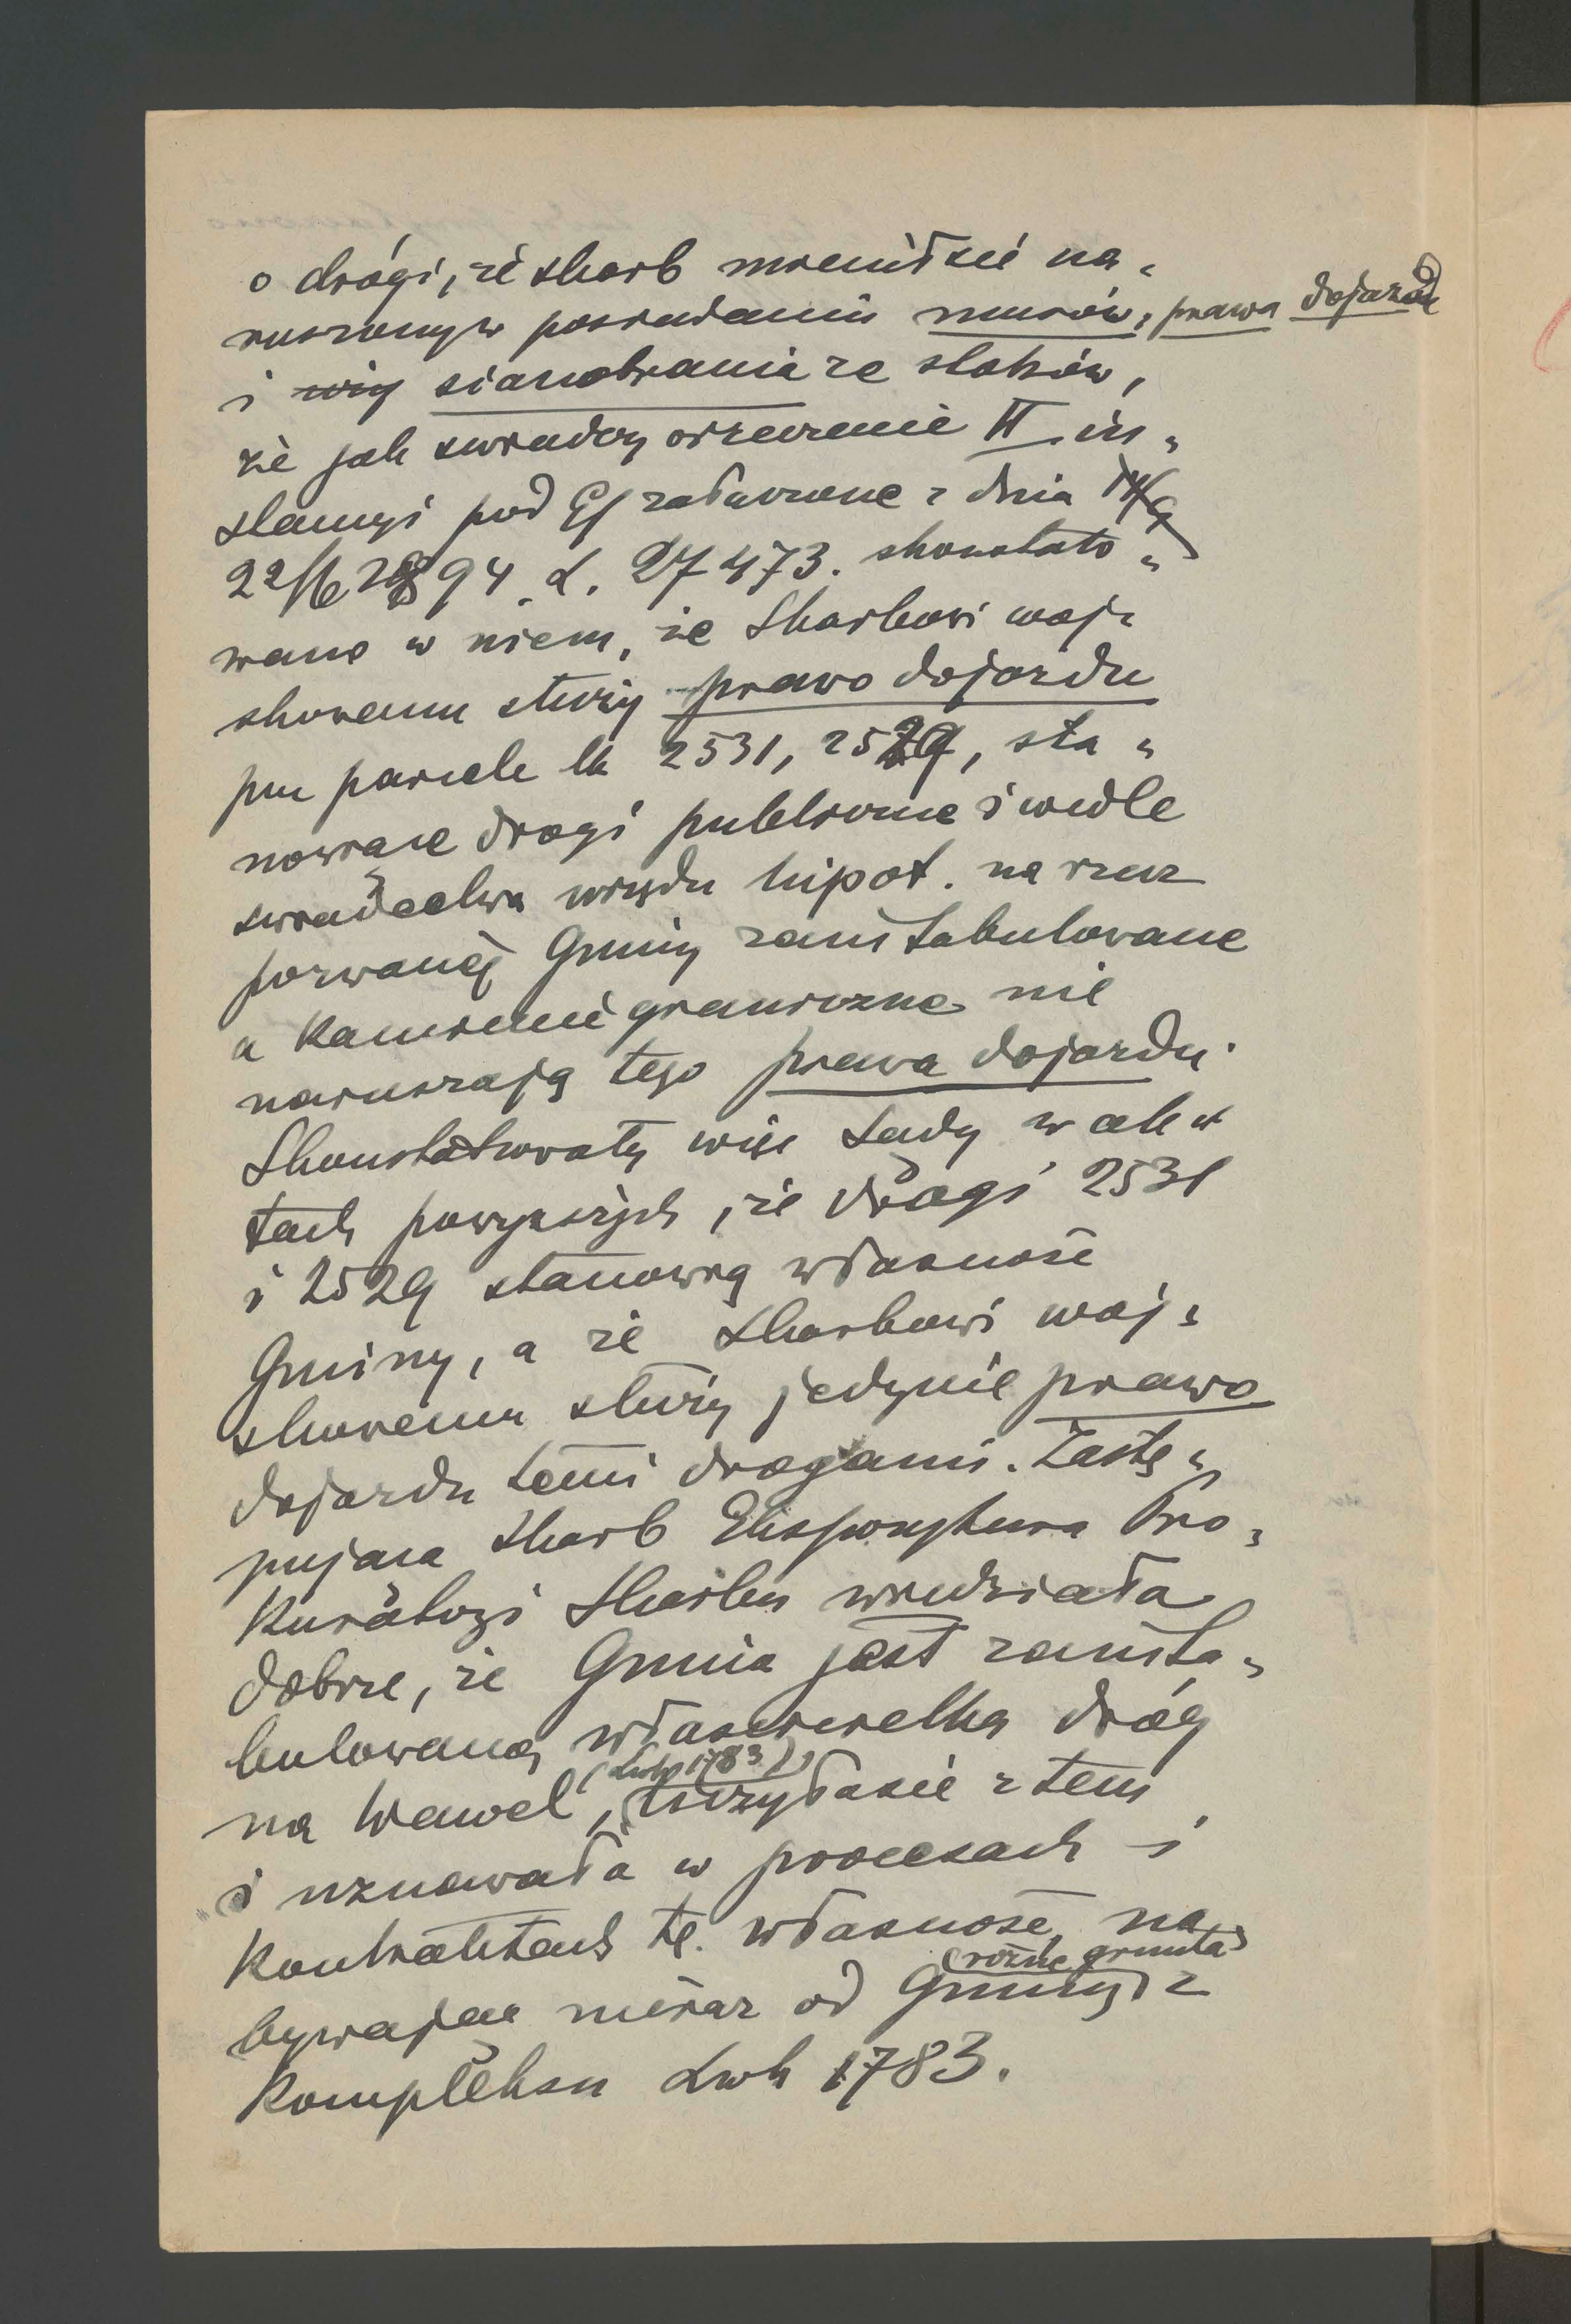 o drogi, że skarb mienił się na„
ruszony w posiadaniu murów, prawa dojazdu
i sianobrania ze stoków,
że jak świadczy orzeczenie II. in„
stancyi pod E/ załączone z dnia
22/6 1894 L. 27473. skonstato„
wano w niem, że Skarbowi woj„
skowemu służy prawo dojazdu
pn parcele lk 2531, 2529, sta„
nowiące drogi publiczne i wedle
świadectwa urzędu hipot. na rzecz
pozwanej Gminy zaintabulowane
a kamienie graniczne nie
naruszają tego prawa dojazdu.
Skonstatowały więc Sądy w ak„
tach powyższych, że drogi 2531
i 2529 stanowią własność
Gminy, a że Skarbowi woj„
skowemu służy jedynie prawo
dojazdu temi drogami. Zastę„
pująca Skarb Ekspozytura Pro„
kuratoryi Skarbu wiedziała
dobrze, że Gmina jest zainta„
bulowaną właścicielką dróg
na Wawel (Lwh 1783), liczyła się z tem
i uznawała w procesach i
kontraktach tę własność, na„
bywając nieraz od Gminy różne grunta z
kompleksu Lwh 1783.